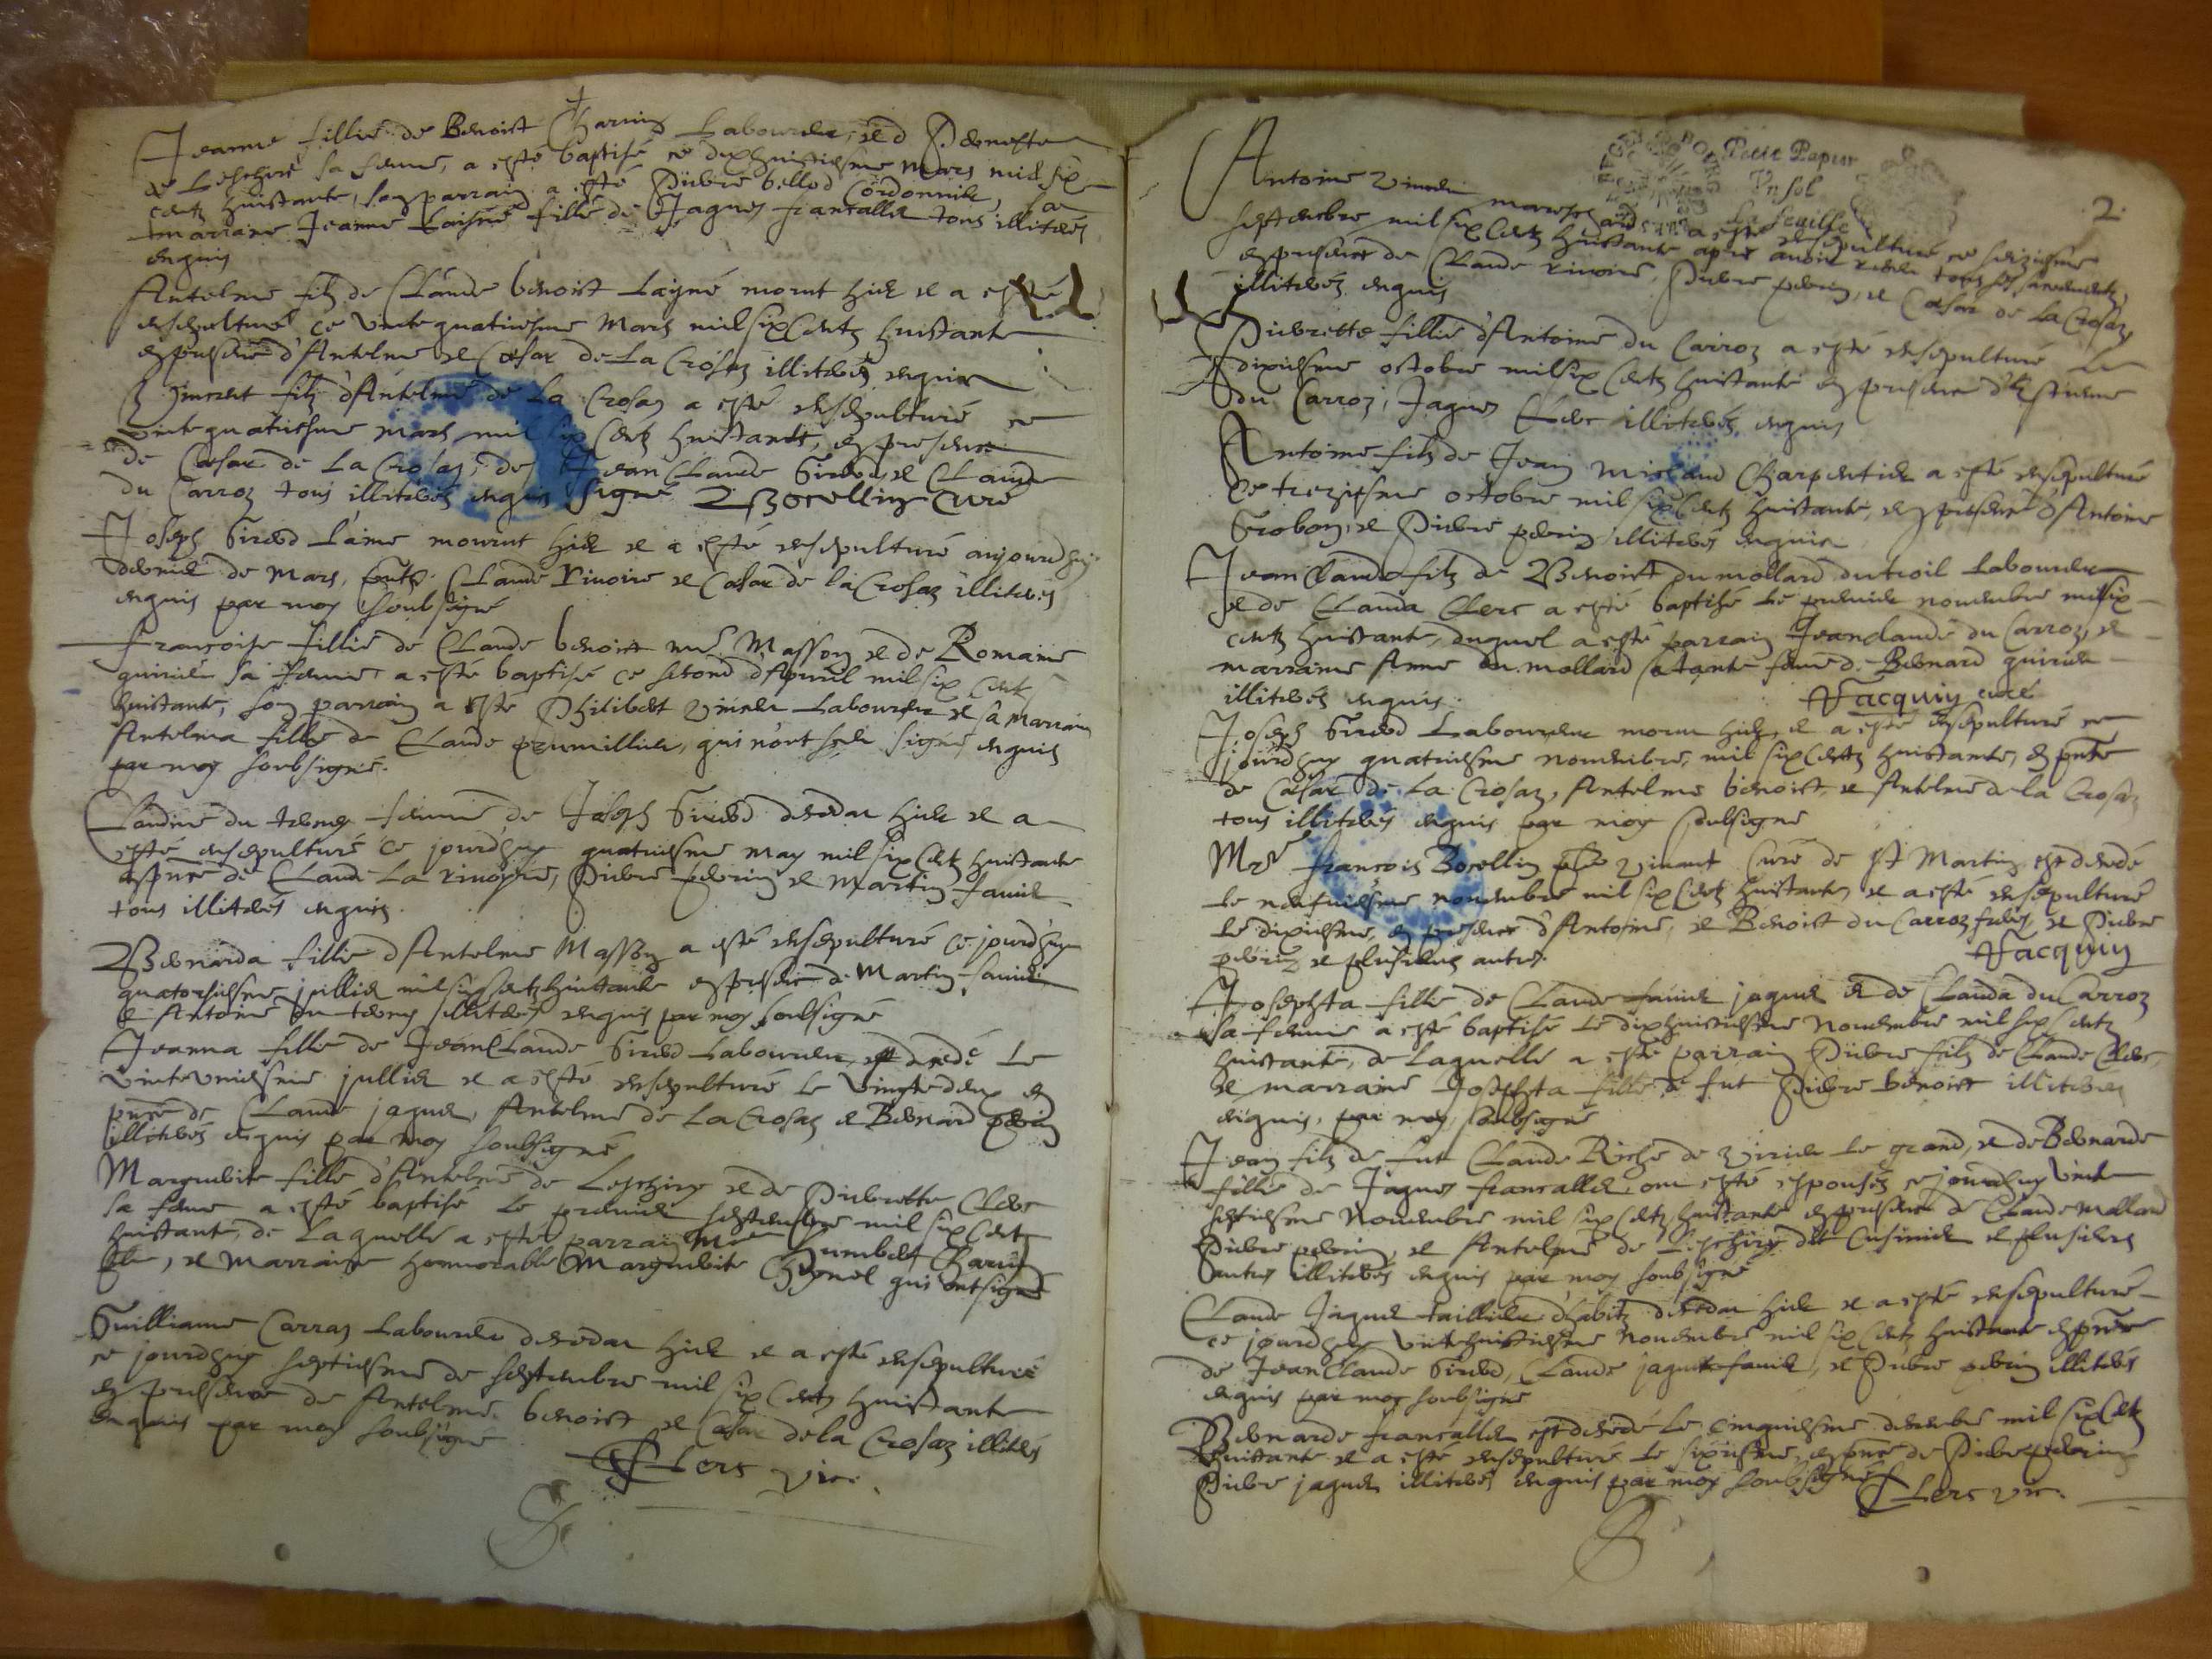 Jeanne fillie de Benoist Charvin Laboureur, et d Pernette
de Leschère sa feme, a esté baptisé ce dixhuitiesme Mars mil six
centz huictante, son parrain a esté Pierre bellod Cordonnier, sa
marraine Jeanne fille de Jaques francallet tous illiterés
enquis
Antelme filz de Claude benoist Layné morut hier et a esté
ensepulturé ce vintequatriesme Mars mil six Centz huictante
en presence d'Antelme et Cesar de La Crosaz illiterés enquis
Vincent filz d'Antelme de La Crosaz a esté ensepulturé ce
vintequatriesme mars mil six Centz huictante, en presence
de Cesar de La Crosaz, de Jean Claude Sireod et Claude
du Carroz tous illiterés enquis Signé Bocellin Curé
Joseph Sireod l'aine mourut hier et a esté ensepulturé aujourdhuy
dernier de Mars, Claude Rivoire et Cesar de la Crosaz illiterés
enquis par moy soubsigné
francoise fillie de Claude benoist Masson et de Romaine
quirier sa femme a esté baptisé ce second d'Apvril mil six Centz
huictante, son parrain a esté Philibert Laboureur et sa marraine
Antelma fille de Claude perumillier, qui n'ont sceu signer enquis
par moy soubsigné.
Claudine du temey femme de Joseph Sireod deceda hier et a
esté ensepulturé ce jourdhuy quatriesme may mil six Centz huictante
en pnce de Claude La rivoyre, Pierre perrin et Martin favier
tous illiterés enquis
Bernarda fillie d'Antelme Masson a esté ensepulturé ce jourdhuy
quatorsiesme juillet mil six Centz huictante en presence de Martin favier
et Antoine du temey illiterés enquis par moy soubsigné
Jeanna fille de Jean Claude Sireod Laboureur, est decedé Le
vinteuniesme juillet et a esté ensepulturé le vingtedeux en
pnce de Claude jaquet, Antelme de La Crosaz et Bernard perrin
illiterés enquis par moy soubsigné
Marguerite fille d'Antelme de Leschère et de Pierrette Clerc
sa feme a esté baptisé le premier septembre mil six Centz
huictante, de Laquelle a esté parrain Mre Humbert Charvin
et Marraine honnorable Marguerite qui ont signé
Guilliaume Carraz Laboureur deceda hier et a esté ensepulturé
ce jourdhuy septiesme de septembre mil six Centz huictante
en presence de Antelme benoist et Cesar de la Crosaz illiterés
enquis par moy soubsigné
Clerc vic.
Petit Papier
Un sol
La feuille
2.
Antoine mareschard a esté ensepulturé ce seizieme
septembre mil six Centz huictante apres avoir receu tous ses sacrements,
en presence de Claude rivoire, Pierre perrin, et Cesar de La Crosaz
illiterés enquis
Pierrette fillie d'Antoine du Carroz a esté ensepulturé Le
dixiesme octobre mil six Centz huictante en presence d'Estienne
du Carroz, Jaques Clerc illiterés enquis
Antoine filz de Jean Michaud Charpentier a esté ensepulturé
ce treziesme octobre mil six Centz huictante, en presence d'Antoine
Grobon, et Pierre perrin illiterés enquis
Jean Claude filz de Benoist du mollard dutroil Laboureur
et de Clauda Clerc a esté baptisé Le premier novembre mil six
centz huictante, duquel a esté parrain Jean claude du Carroz, et
marraine Anne du mollard sa tante feme d. Bernard quirier
illiterés enquis. Jacquin curé
Joseph Sireod Laboureur morut hier, et a esté ensepulturé ce
jourdhuy quatriesme novembre, mil six Centz huictante, en pnce
de Cesar de La Crosaz, Antelme benoist, et Antelme de la Crosaz
tous illiterés enquis par moy soubsigné
Mre francois Bocellin vivant Curé de St Martin est decedé
le neufviesme novembre mil six Centz huictante, et a esté ensepulturé
Le dixiesme, en presence d'Antoine, et Benoist du Carroz freres, et Pierre
perrin et plusieurs autres. Jacquin
Josephta fille de Claude favier jaquet et de Clauda du Carroz
sa femme a esté baptisé Le dixhuictiesme Novembre mil six Centz
huictante, de laquelle a esté parrain Pierre filz de Claude Clerc,
et marraine Josephta fille de fut Pierre benoist illiterés
enquis, par moy, soubsigné
Jean filz de fut Claude Riche de virieu Le grand, et de Bernarde
fillie de Jaques francallet, ont esté espousés ce jourdhuy vinte
septiesme Novembre mil six Centz huictante en presence de Claude Mollard
Pierre perrin, et Antelme de Leschère dit Cusinier et plusieurs
autres illiterés enquis par moy soubsigné
Claude Jaquet taillieur d'habitz deceda hier et a esté ensepulturé
ce jourdhuy vintehuictiesme Novembre mil six Centz huictante en pnce
de Jean Claude Sireod, Claude jaquet favier, et Pierre perrin illiterés
enquis par moy soubsigné
Bernarde francallet est decedé le cinquiesme decembre mil six Centz
huictante et a esté ensepulturé le sixiesme, en pnce de Pierre perrin
Pierre jaquet illiterés enquis par moy soubsigné Clerc vic.